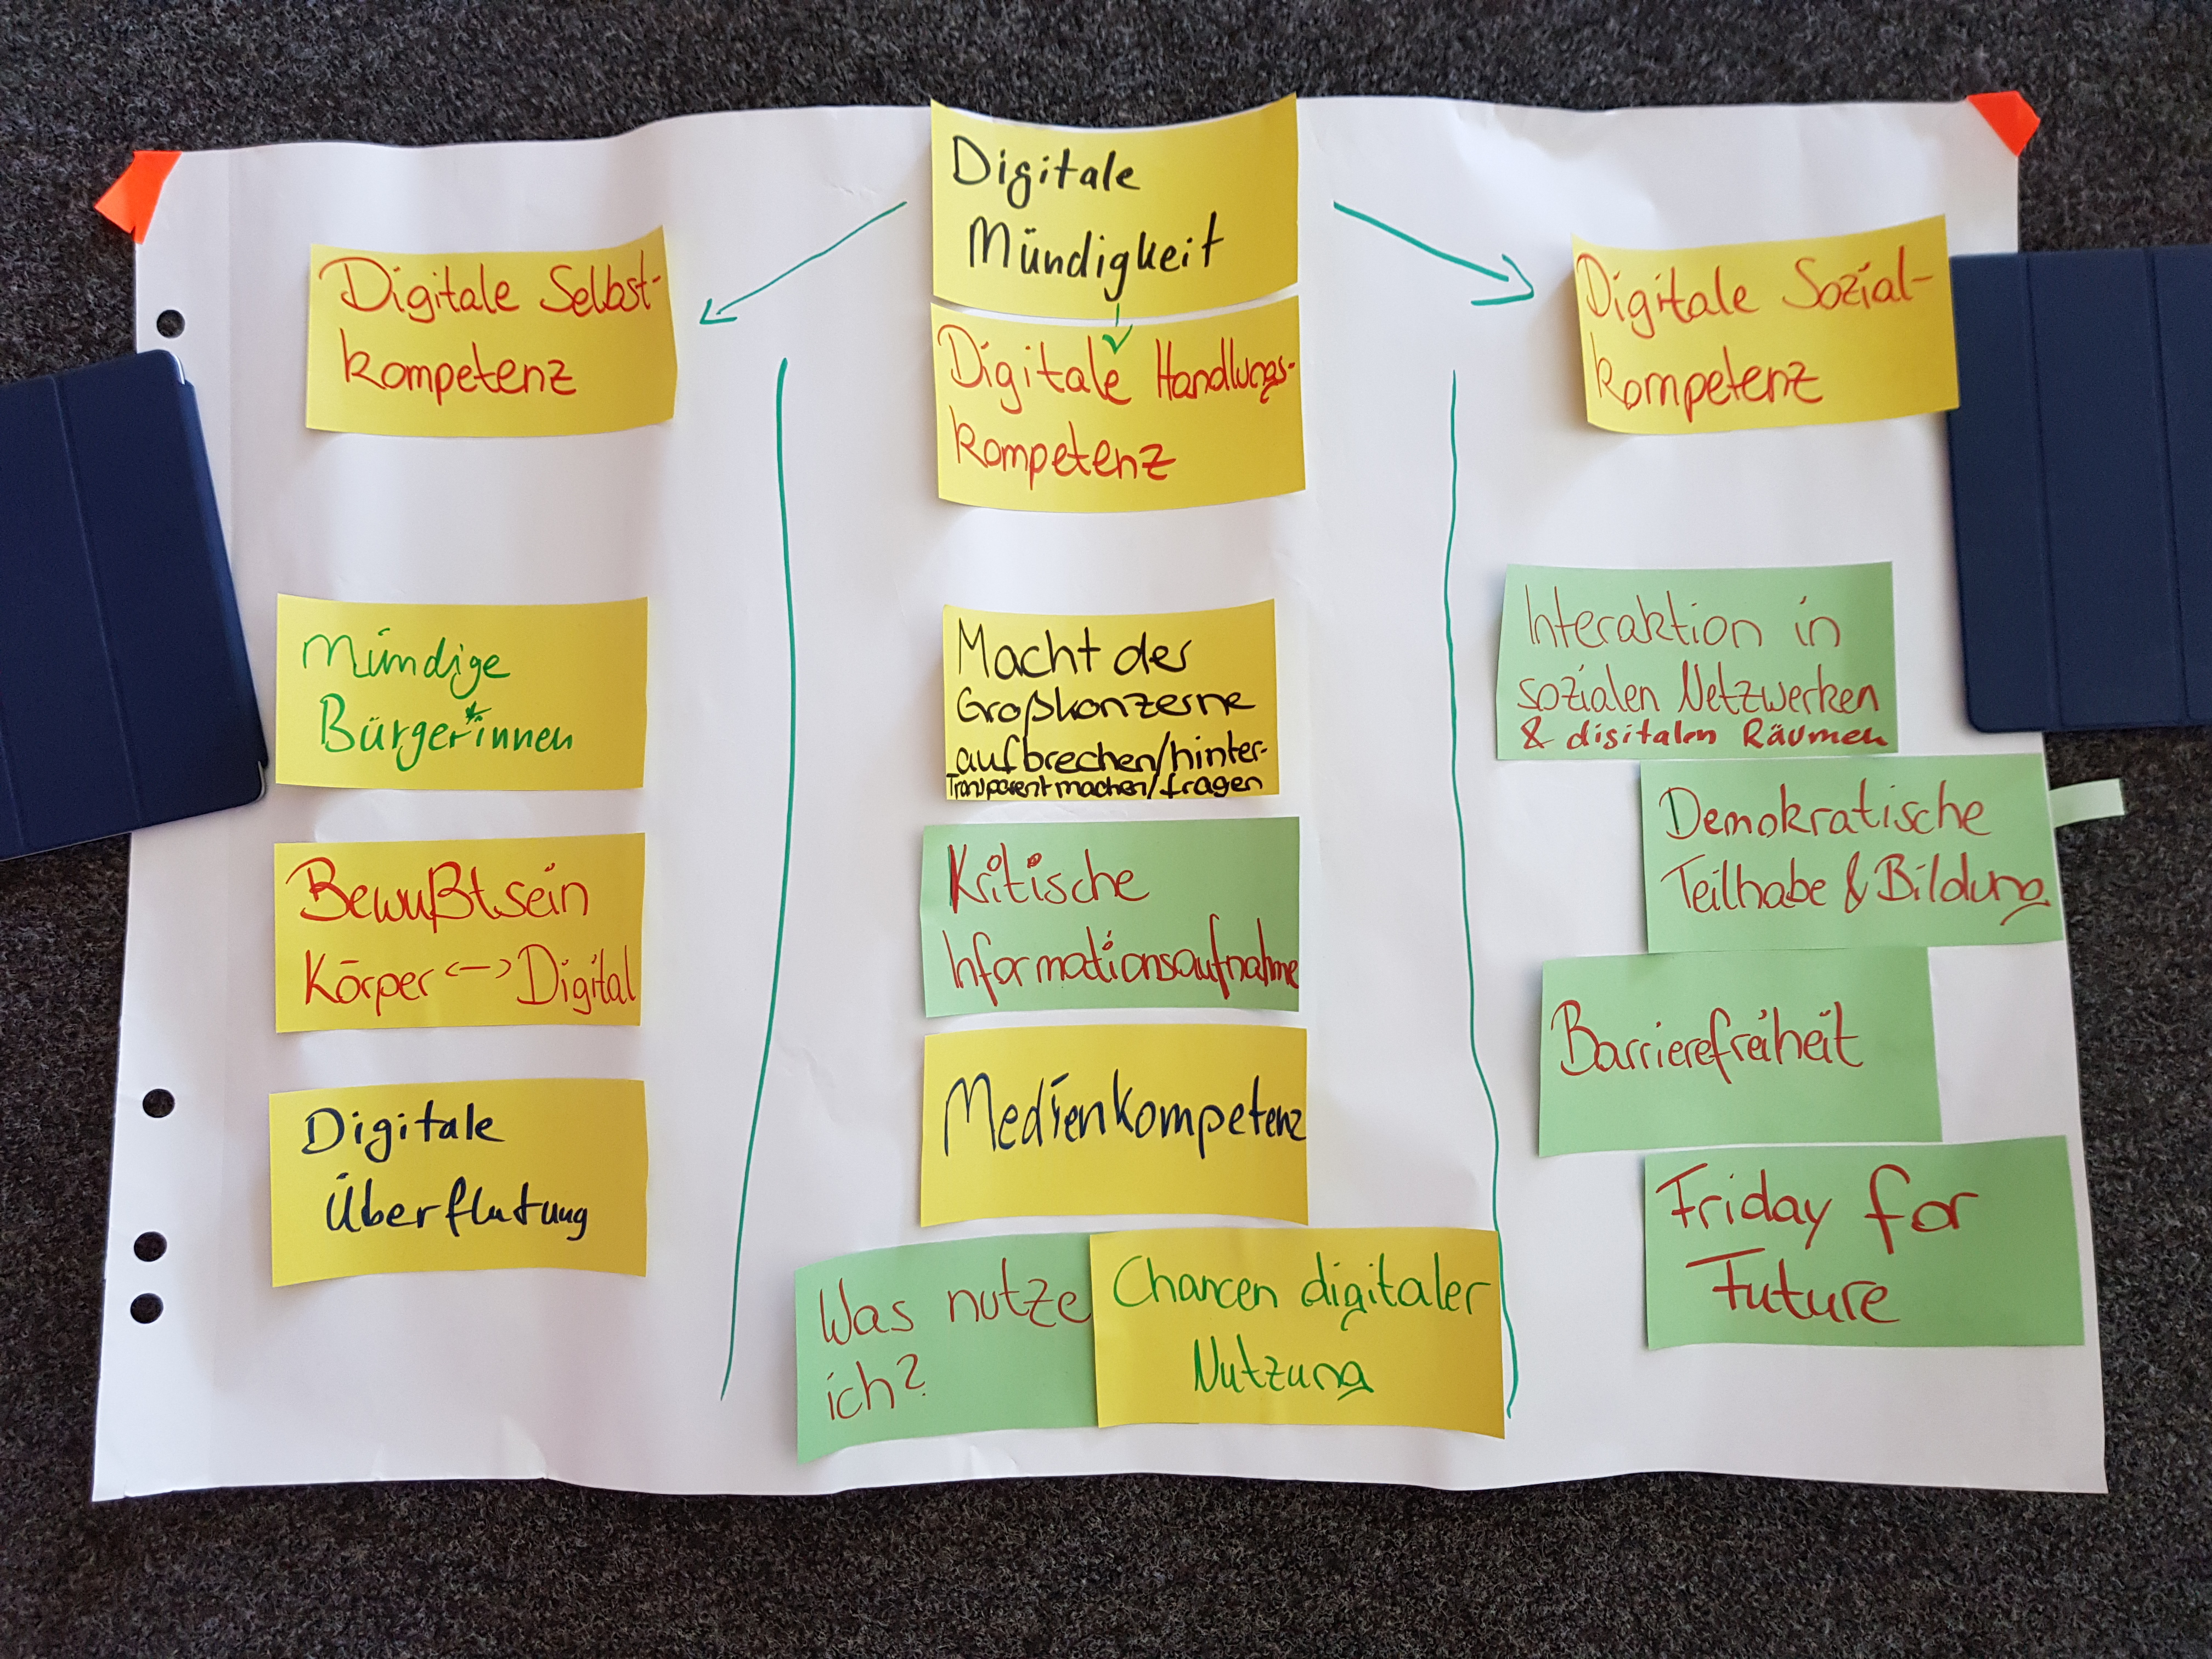 Digitale
Mündigkeit
Digitale Selbst-
kompetenz
Digitale Handlungs-
kompetenz
Digitale Sozial-
kompetenz
Mündige
Bürger*innen
Bewußtsein
Körper <-> Digital
Digitale
Überflutung
Macht der
Großkonzerne
aufbrechen/hinter-
Transparent machen/fragen
Kritische
Informationsaufnahme
Medienkompetenz
Was nutze
ich?
Chancen digitaler
Nutzung
Interaktion in
sozialen Netzwerken
& digitalen Räumen
Demokratische
Teilhabe & Bildung
Barrierefreiheit
Friday for
Future